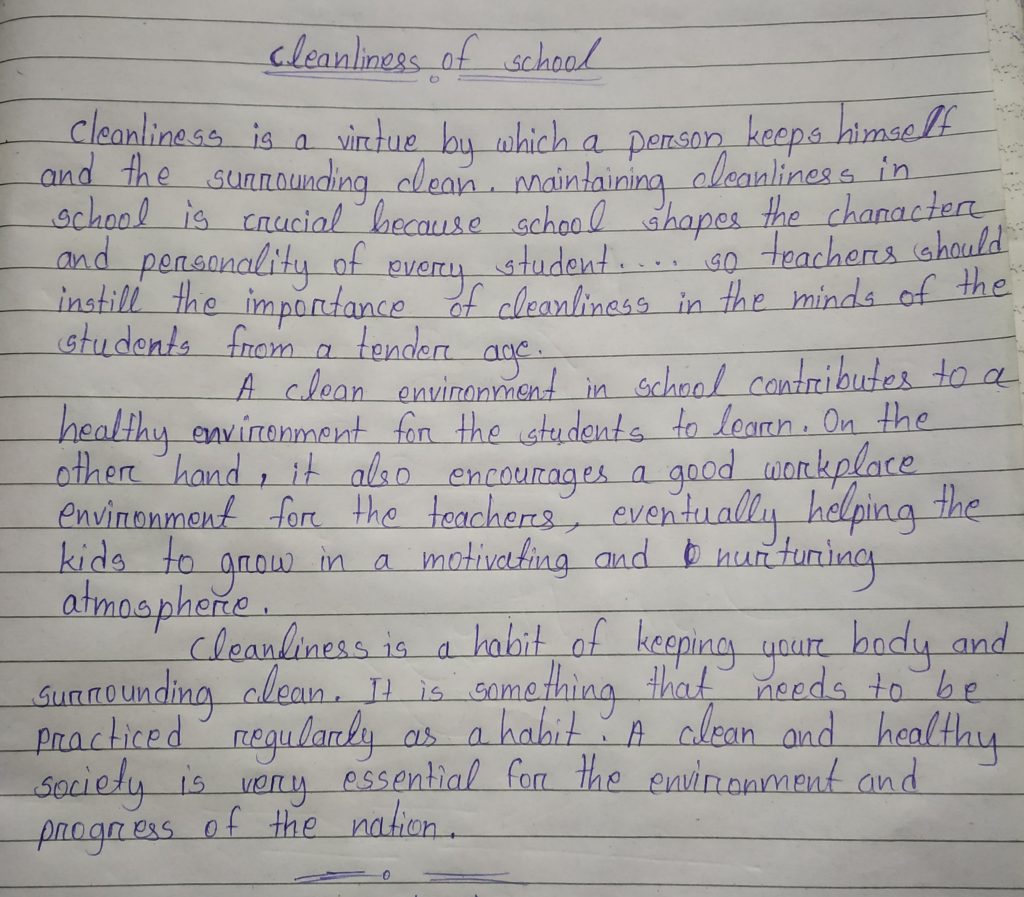 Cleanliness of school
Cleanliness is a virtue by which a person keeps himself
and the surrounding clean. Maintaining cleanliness in
school is crucial because school shapes the character
and personality of every student.... so teachers should
instill the importance of cleanliness in the minds of the
students from a tender age.
A clean environment in school contributes to a
healthy environment for the students to learn. On the
other hand, it also encourages a good workplace
environment for the teachers, eventually helping the
kids to grow in a motivating and nurturing
atmosphere.
Cleanliness is a habit of keeping your body and
surrounding clean. It is something that needs to be
practiced regularly as a habit. A clean and healthy
society is very essential for the environment and
progress of the nation.